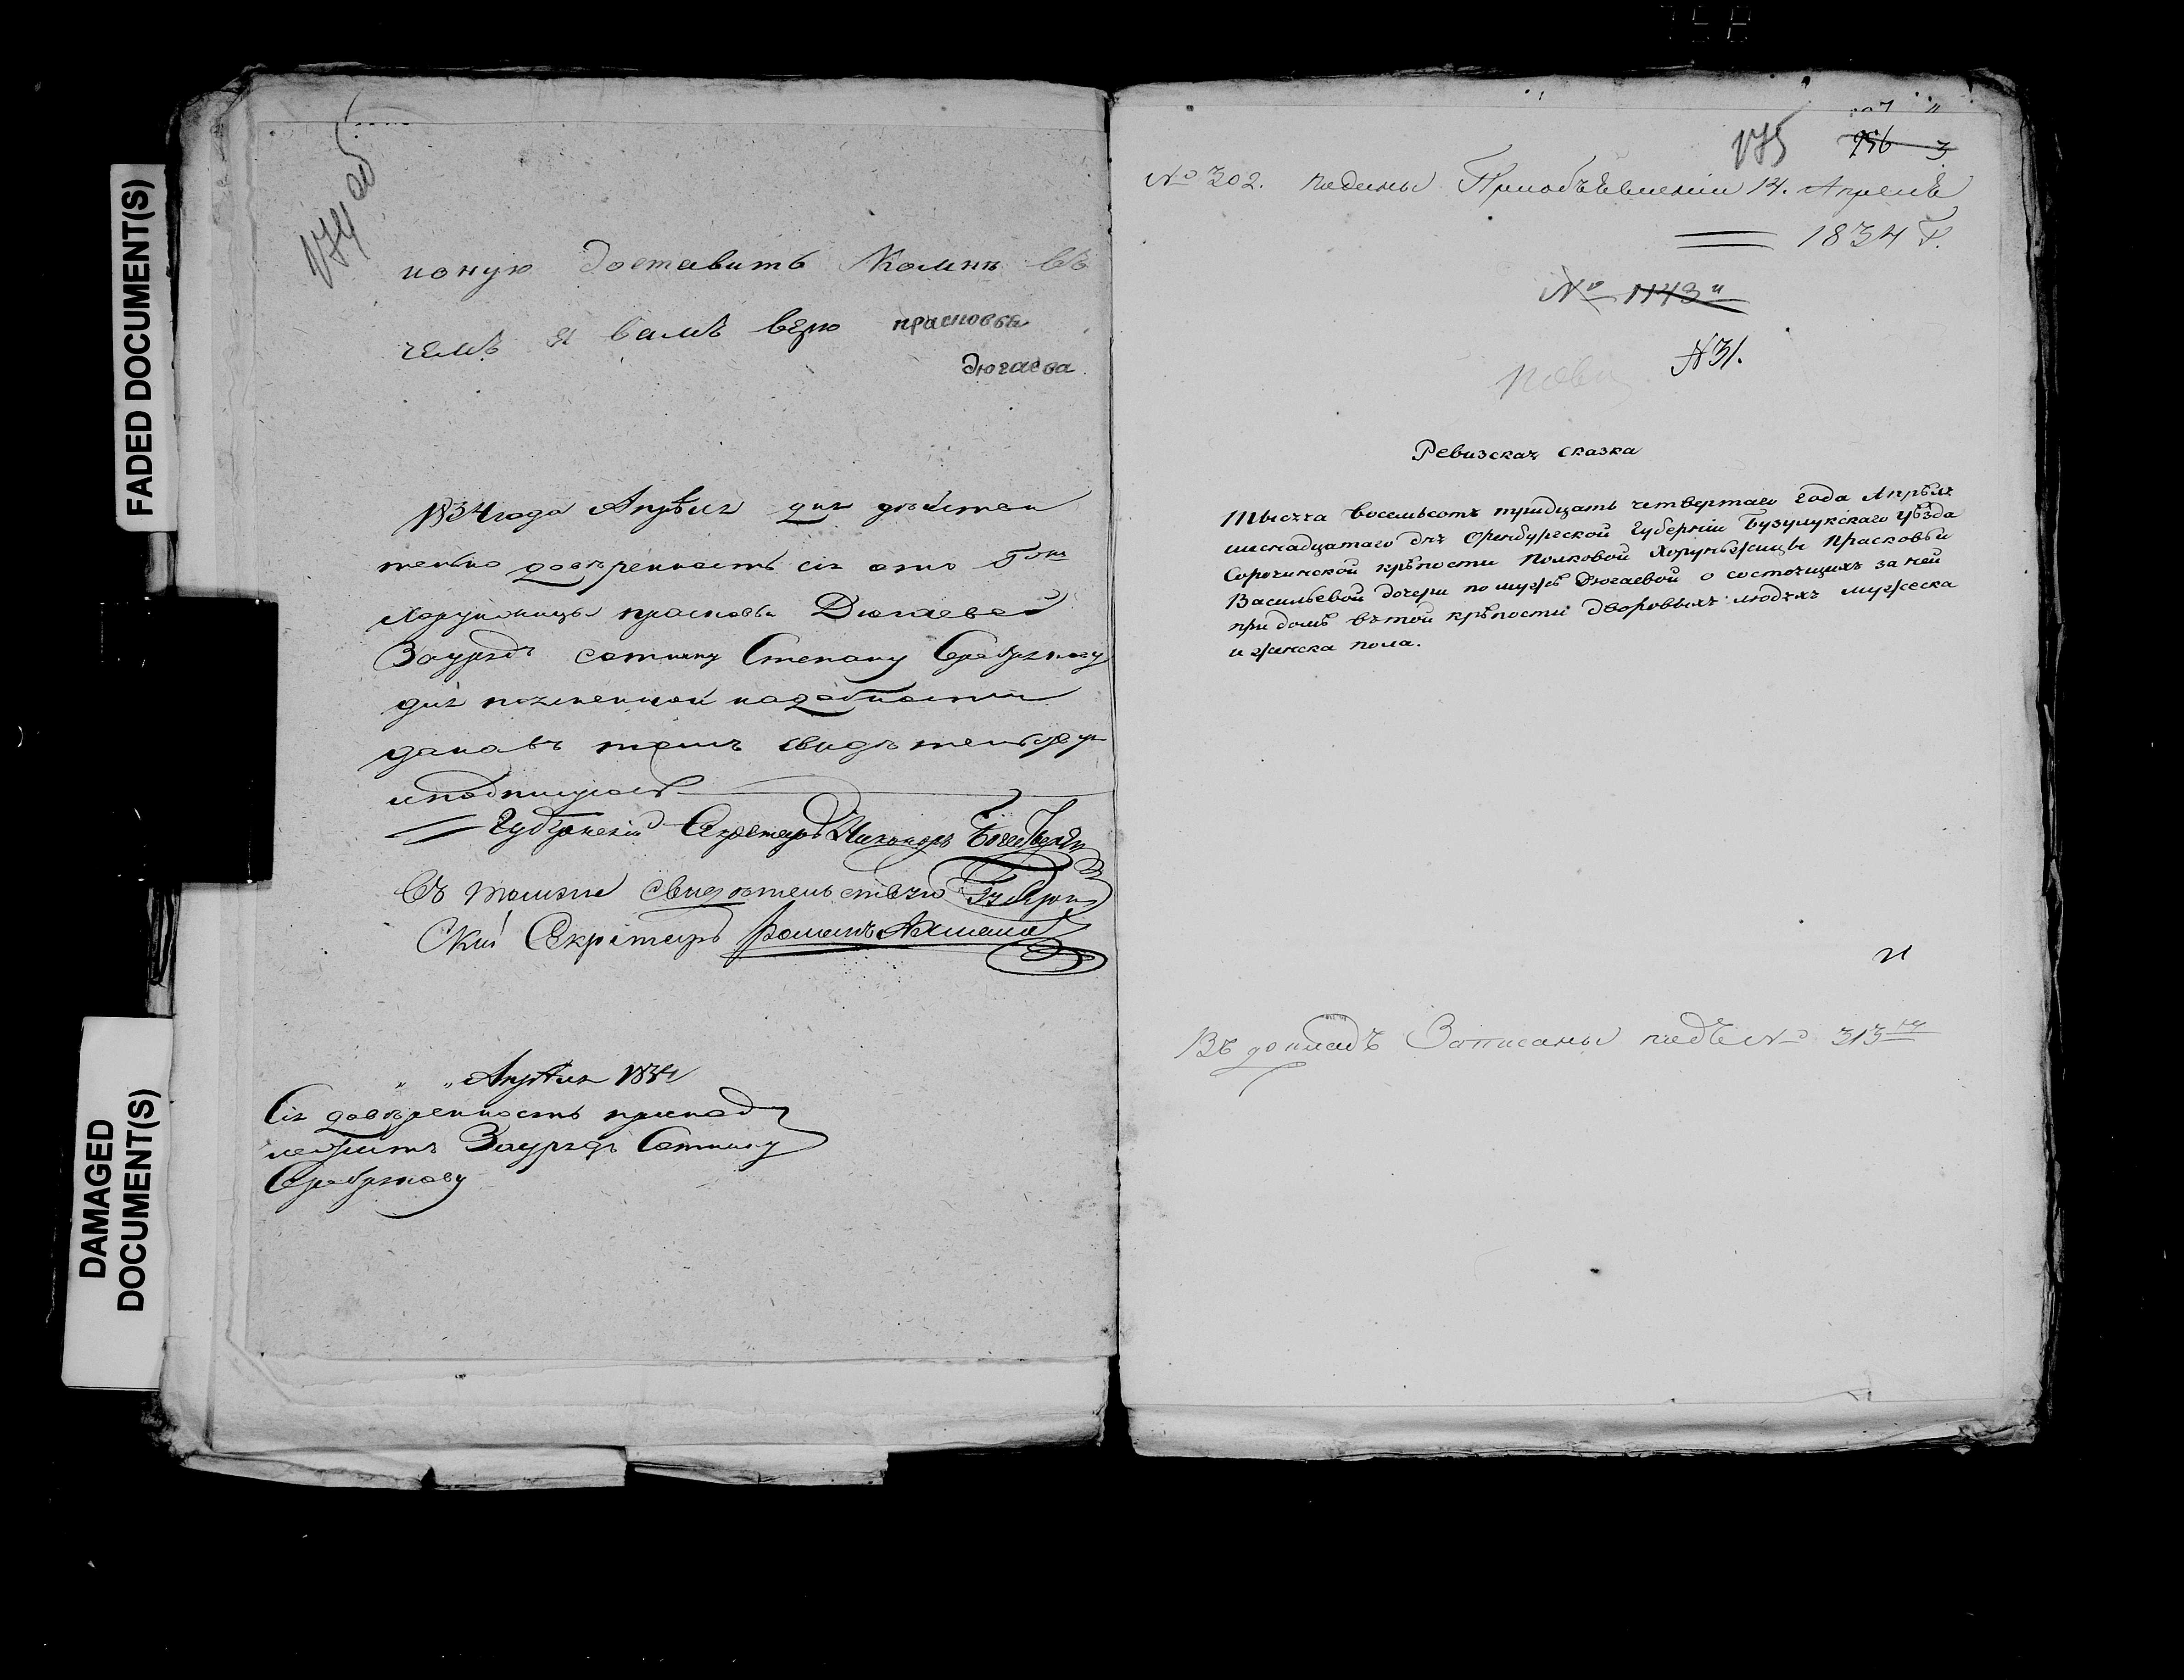 FADED DOCUMENT(S)
DAMAGED
DOCUMENT(S)
174 об
оную доставить комне въ
чемъ я вамъ верю прасковья
Дюгаева
1834 года Апрѣля дня
довѣренность сія
прасковьи Дюгаевой
Заурядъ сотнику Степану Серебрякову
для надобности
дана въ томъ свидѣтельствую
и подписуюсь
Губернскій Секретарь Никаноръ
Въ томже свидѣтельствую Губерн
Скій Секретарь Романъ
" " Апрѣля 1834
Сія довѣренность принад
лежитъ Заурядъ Сотнику
Серебрякову
175
956 3
№ 302. поданы При объявленіи 14. Апреля
1834 г.
№ 1143
№ 31.
Ревизская сказка
Тысяча восемьсотъ тридцать четвертаго года Апрѣля
шеснадцатаго дня Оренбургской Губерніи Бузулукскаго уѣзда
Сорочинской крѣпости Полковой Хорунжицы Прасковьи
Васильевой дочери по мужѣ Дюгаевой о состоящихъ за ней
при домѣ въ той крѣпости дворовыхъ людяхъ мужеска
и женска пола.
Въ докладъ Записаны подъ № 313